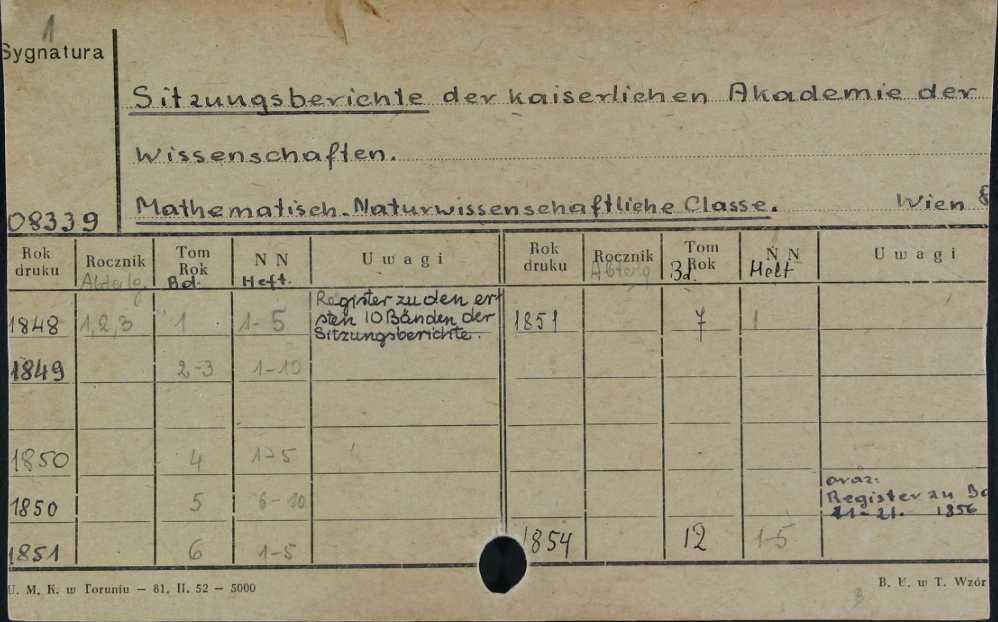 1
Sygnatura
Sitzungsberichte der kaiserlichen Akademie der
Wissenschaften.
08339
Mathematisch-Naturwissenschaftliche Classe. Wien
Rok druku Rocznik Abteilg. Tom Rok Bd. N N Heft. Uwagi Rok druku Rocznik Abteilg Tom Rok Bd. N N Heft Uwagi
1848 1,2,3 1 1-5 Register zu den er-
sten 10 Bänden der
Sitzungsberichte.
1851 7 1
1849 2-3 1-10
1850 4 1-5
1850 5 6-10
oraz:
Register zu Bd
11-21. 1856
1851 6 1-5 1854 12 1-5
U. M. K. w Toruniu — 81. II. 52 — 5000 B. U. w T. Wzór